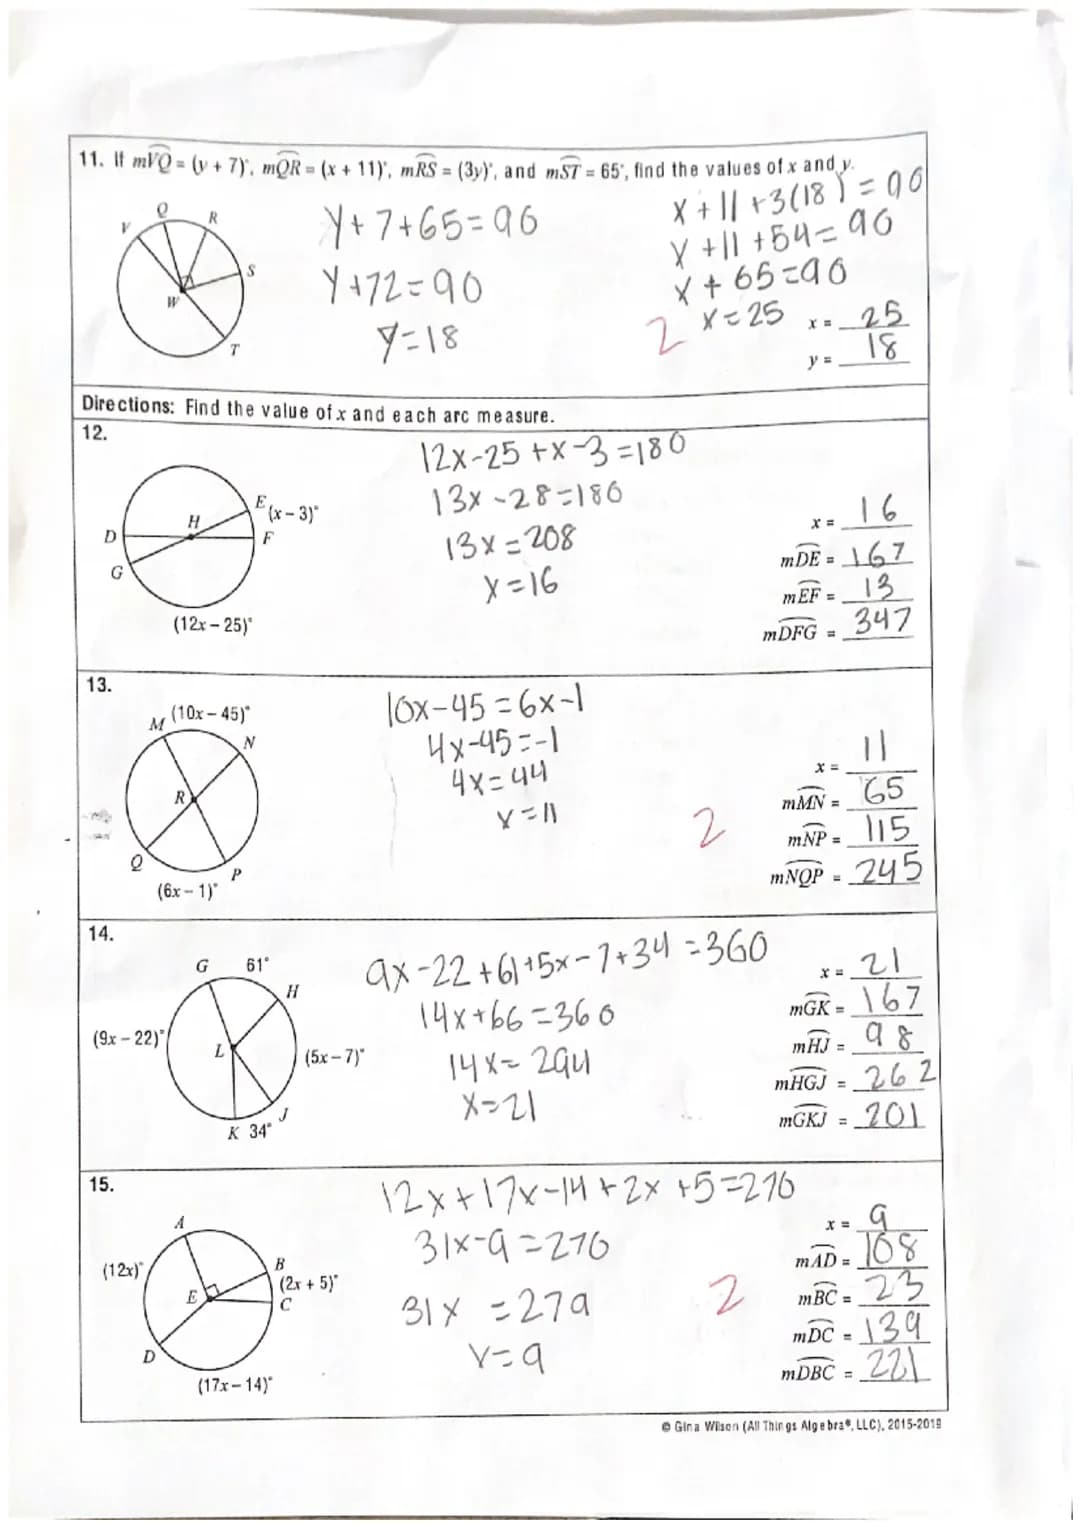 11. If mVQ = (y + 7)°, mQR = (x + 11)°, mRS = (3y)°, and mST = 65°, find the values of x and y.
Q
R
V
S
W
T
y+7+65=90
y+72=90
y=18
x+11+3(18)=90
x+11+54=90
x+65=90
x=25
2
x = 25
y = 18
Directions: Find the value of x and each arc measure.
12.
E
(x – 3)°
H
D
F
G
(12x – 25)°
12x-25+x-3=180
13x-28=180
13x=208
x=16
x = 16
mDE = 167
mEF = 13
mDFG = 347
13.
M
(10x – 45)°
N
R
Q
P
(6x – 1)°
10x-45=6x-1
4x-45=-1
4x=44
x=11
2
x = 11
mMN = 65
mNP = 115
mNQP = 245
14.
G
61°
H
(9x – 22)°
L
(5x – 7)°
J
K 34°
9x-22+61+5x-7+34=360
14x+66=360
14x=294
x=21
x = 21
mGK = 167
mHJ = 98
mHGJ = 262
mGKJ = 201
15.
A
(12x)°
B
(2x + 5)°
E
C
D
(17x – 14)°
12x+17x-14+2x+5=270
31x-9=270
31x =279
x=9
2
x = 9
mAD = 108
mBC = 23
mDC = 139
mDBC = 221
© Gina Wilson (All Things Algebra®, LLC), 2015-2019